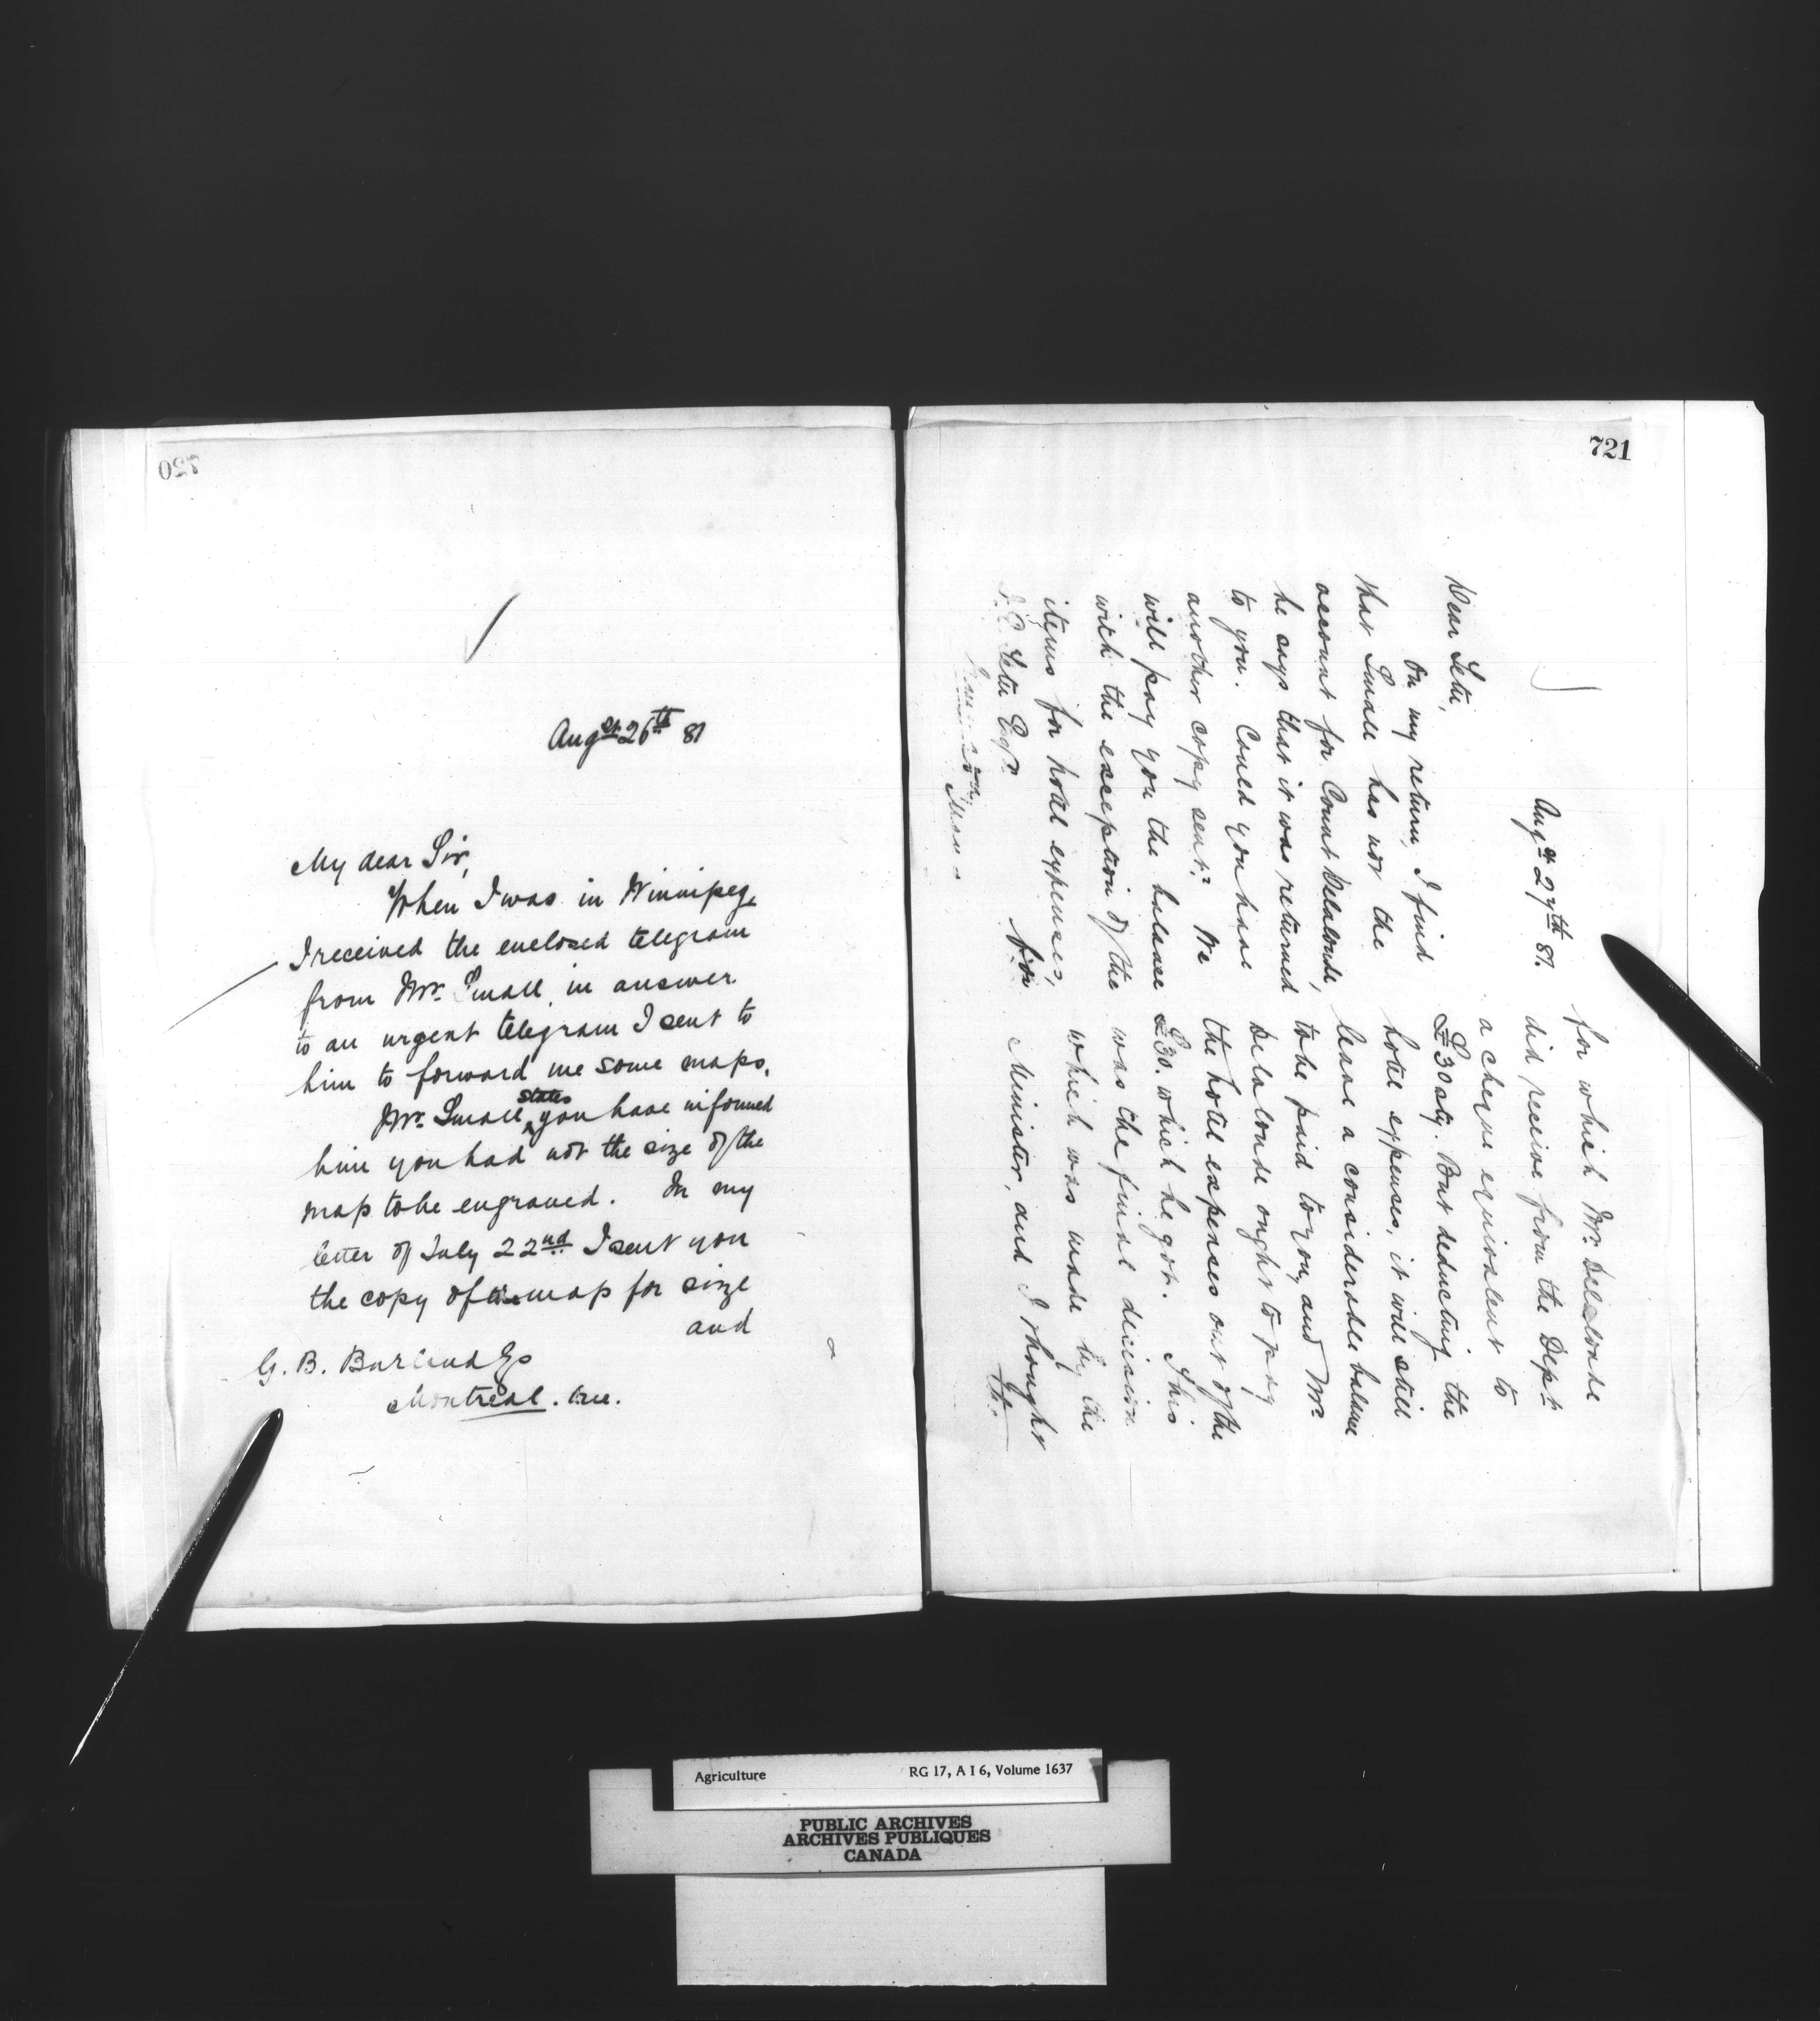 Augst 26th 81
My dear Sir,
When I was in Winnipeg,
I received the enclosed telegram
from Mr. Small, in answer
to an urgent telegram I sent to
him to forward me some maps.
Mr. Small states you have informed
him you had not the size of the
map to be engraved. In my
letter of July 22nd I sent you
the copy of the map for size
and
G. B. Burland Esq
Montreal. Que.
721
Augst 27th 81.
Dear Setu,
On my return, I find
that Small has not the
account for Count Delalonde,
he says that it was returned
to you. Could you have
another copy sent? We
will pay you the balance
with the exception of the
items for hotel expenses,
for
Esqr.
for which Mr. Delalonde
did receive from the Dept.
a cheque equivalent to
£30 stg. But deducting the
hotel expenses, it will still
leave a considerable balance
to be paid to you, and Mr.
Delalonde ought to pay
the hotel expenses out of the
£30. which he got. This
was the final decision
which was made by the
Minister, and I thought
it.
Agriculture RG 17, A I 6, Volume 1637
PUBLIC ARCHIVES
ARCHIVES PUBLIQUES
CANADA